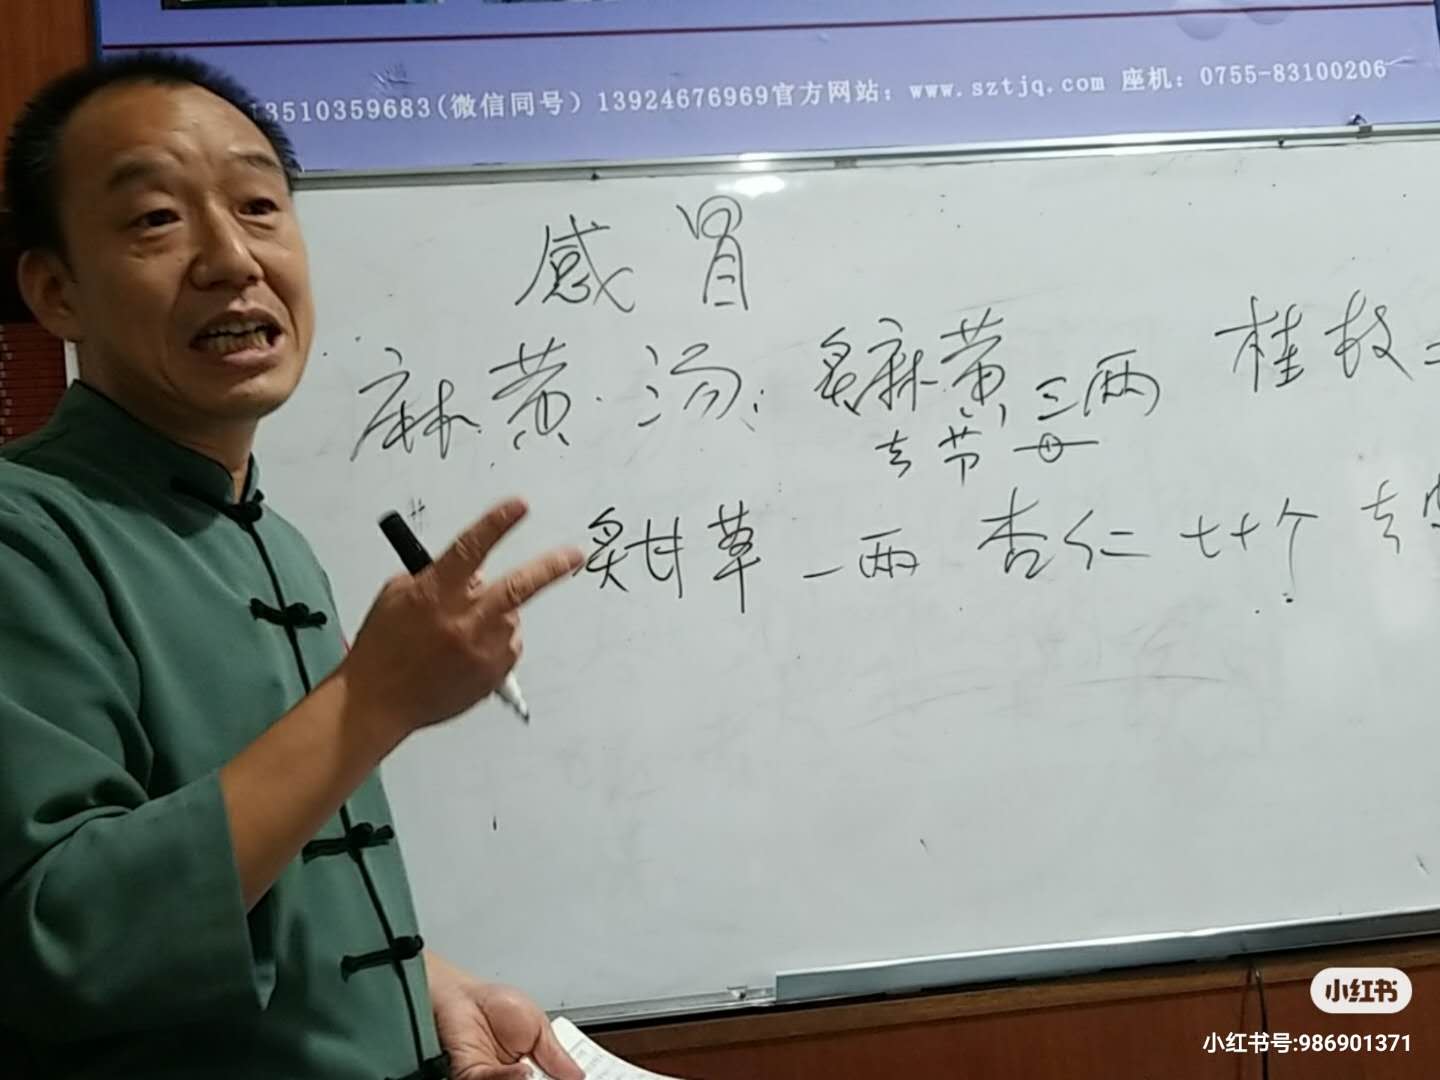 13510359683(微信同号) 13924676969官方网站：www.sztjq.com 座机：0755-83100206
感冒
麻黄汤：炙麻黄三两 桂枝二
去节
炙甘草一两 杏仁七十个 去
小红书
小红书号:986901371